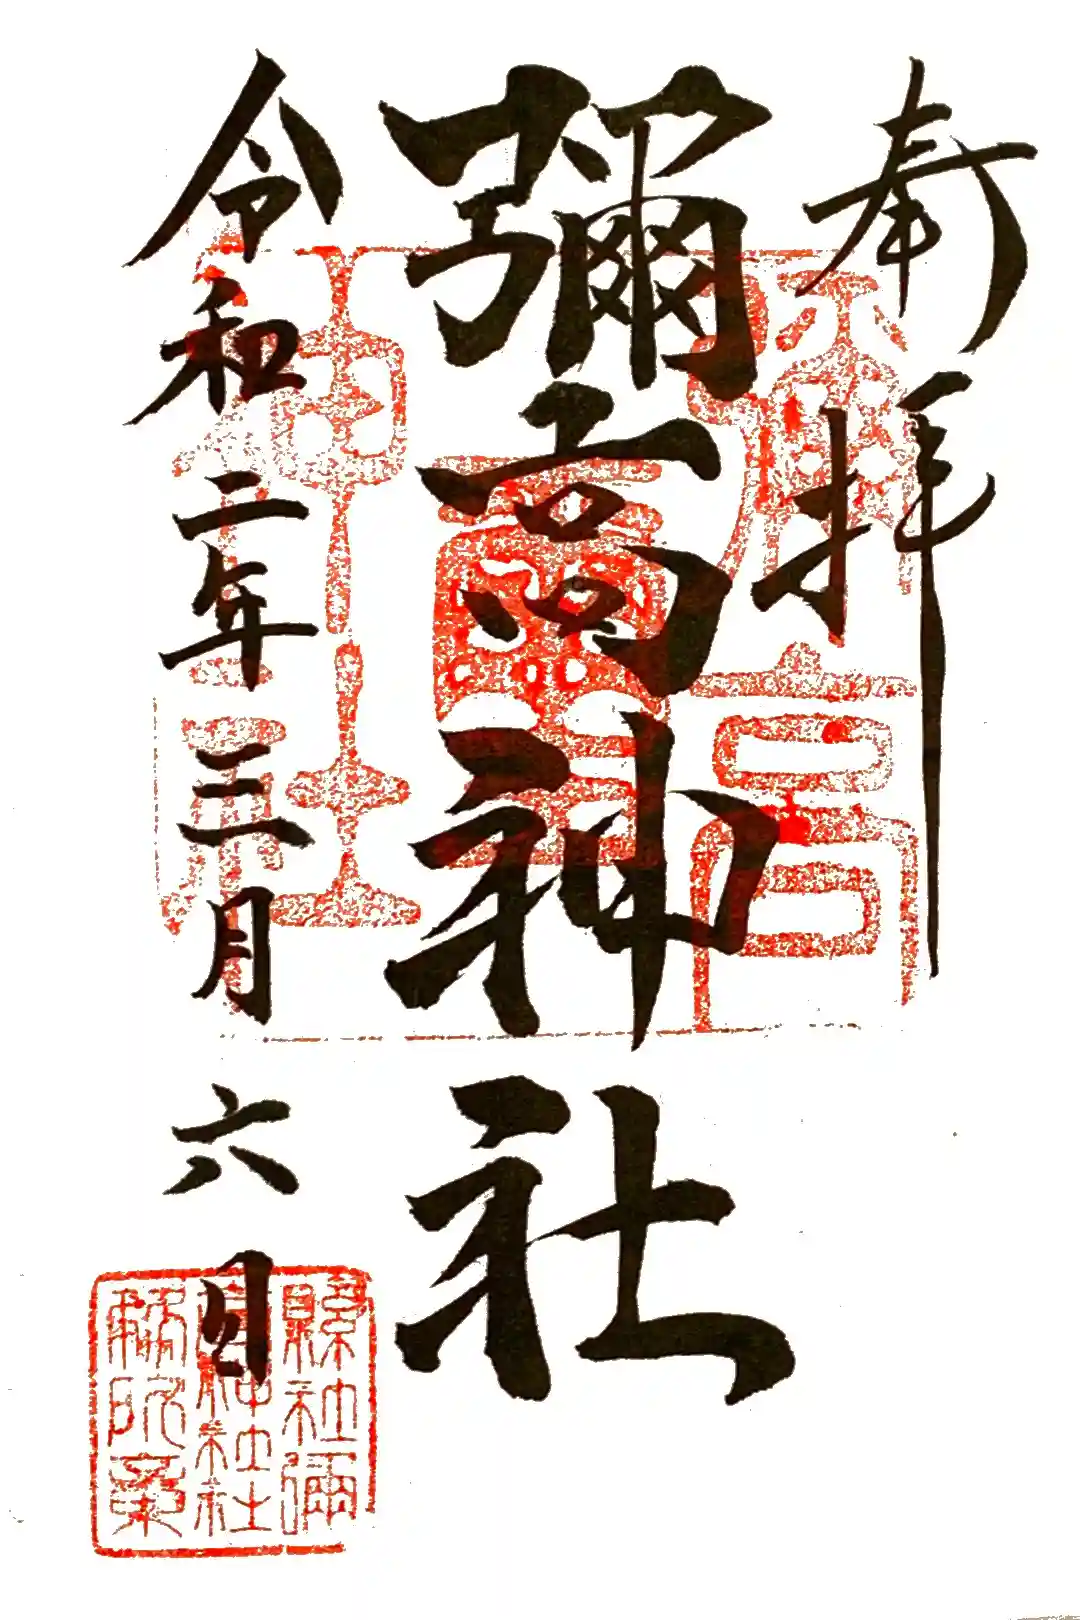 奉拝
彌高神社
令和二年三月六日
縣社彌
高神社社
務所章